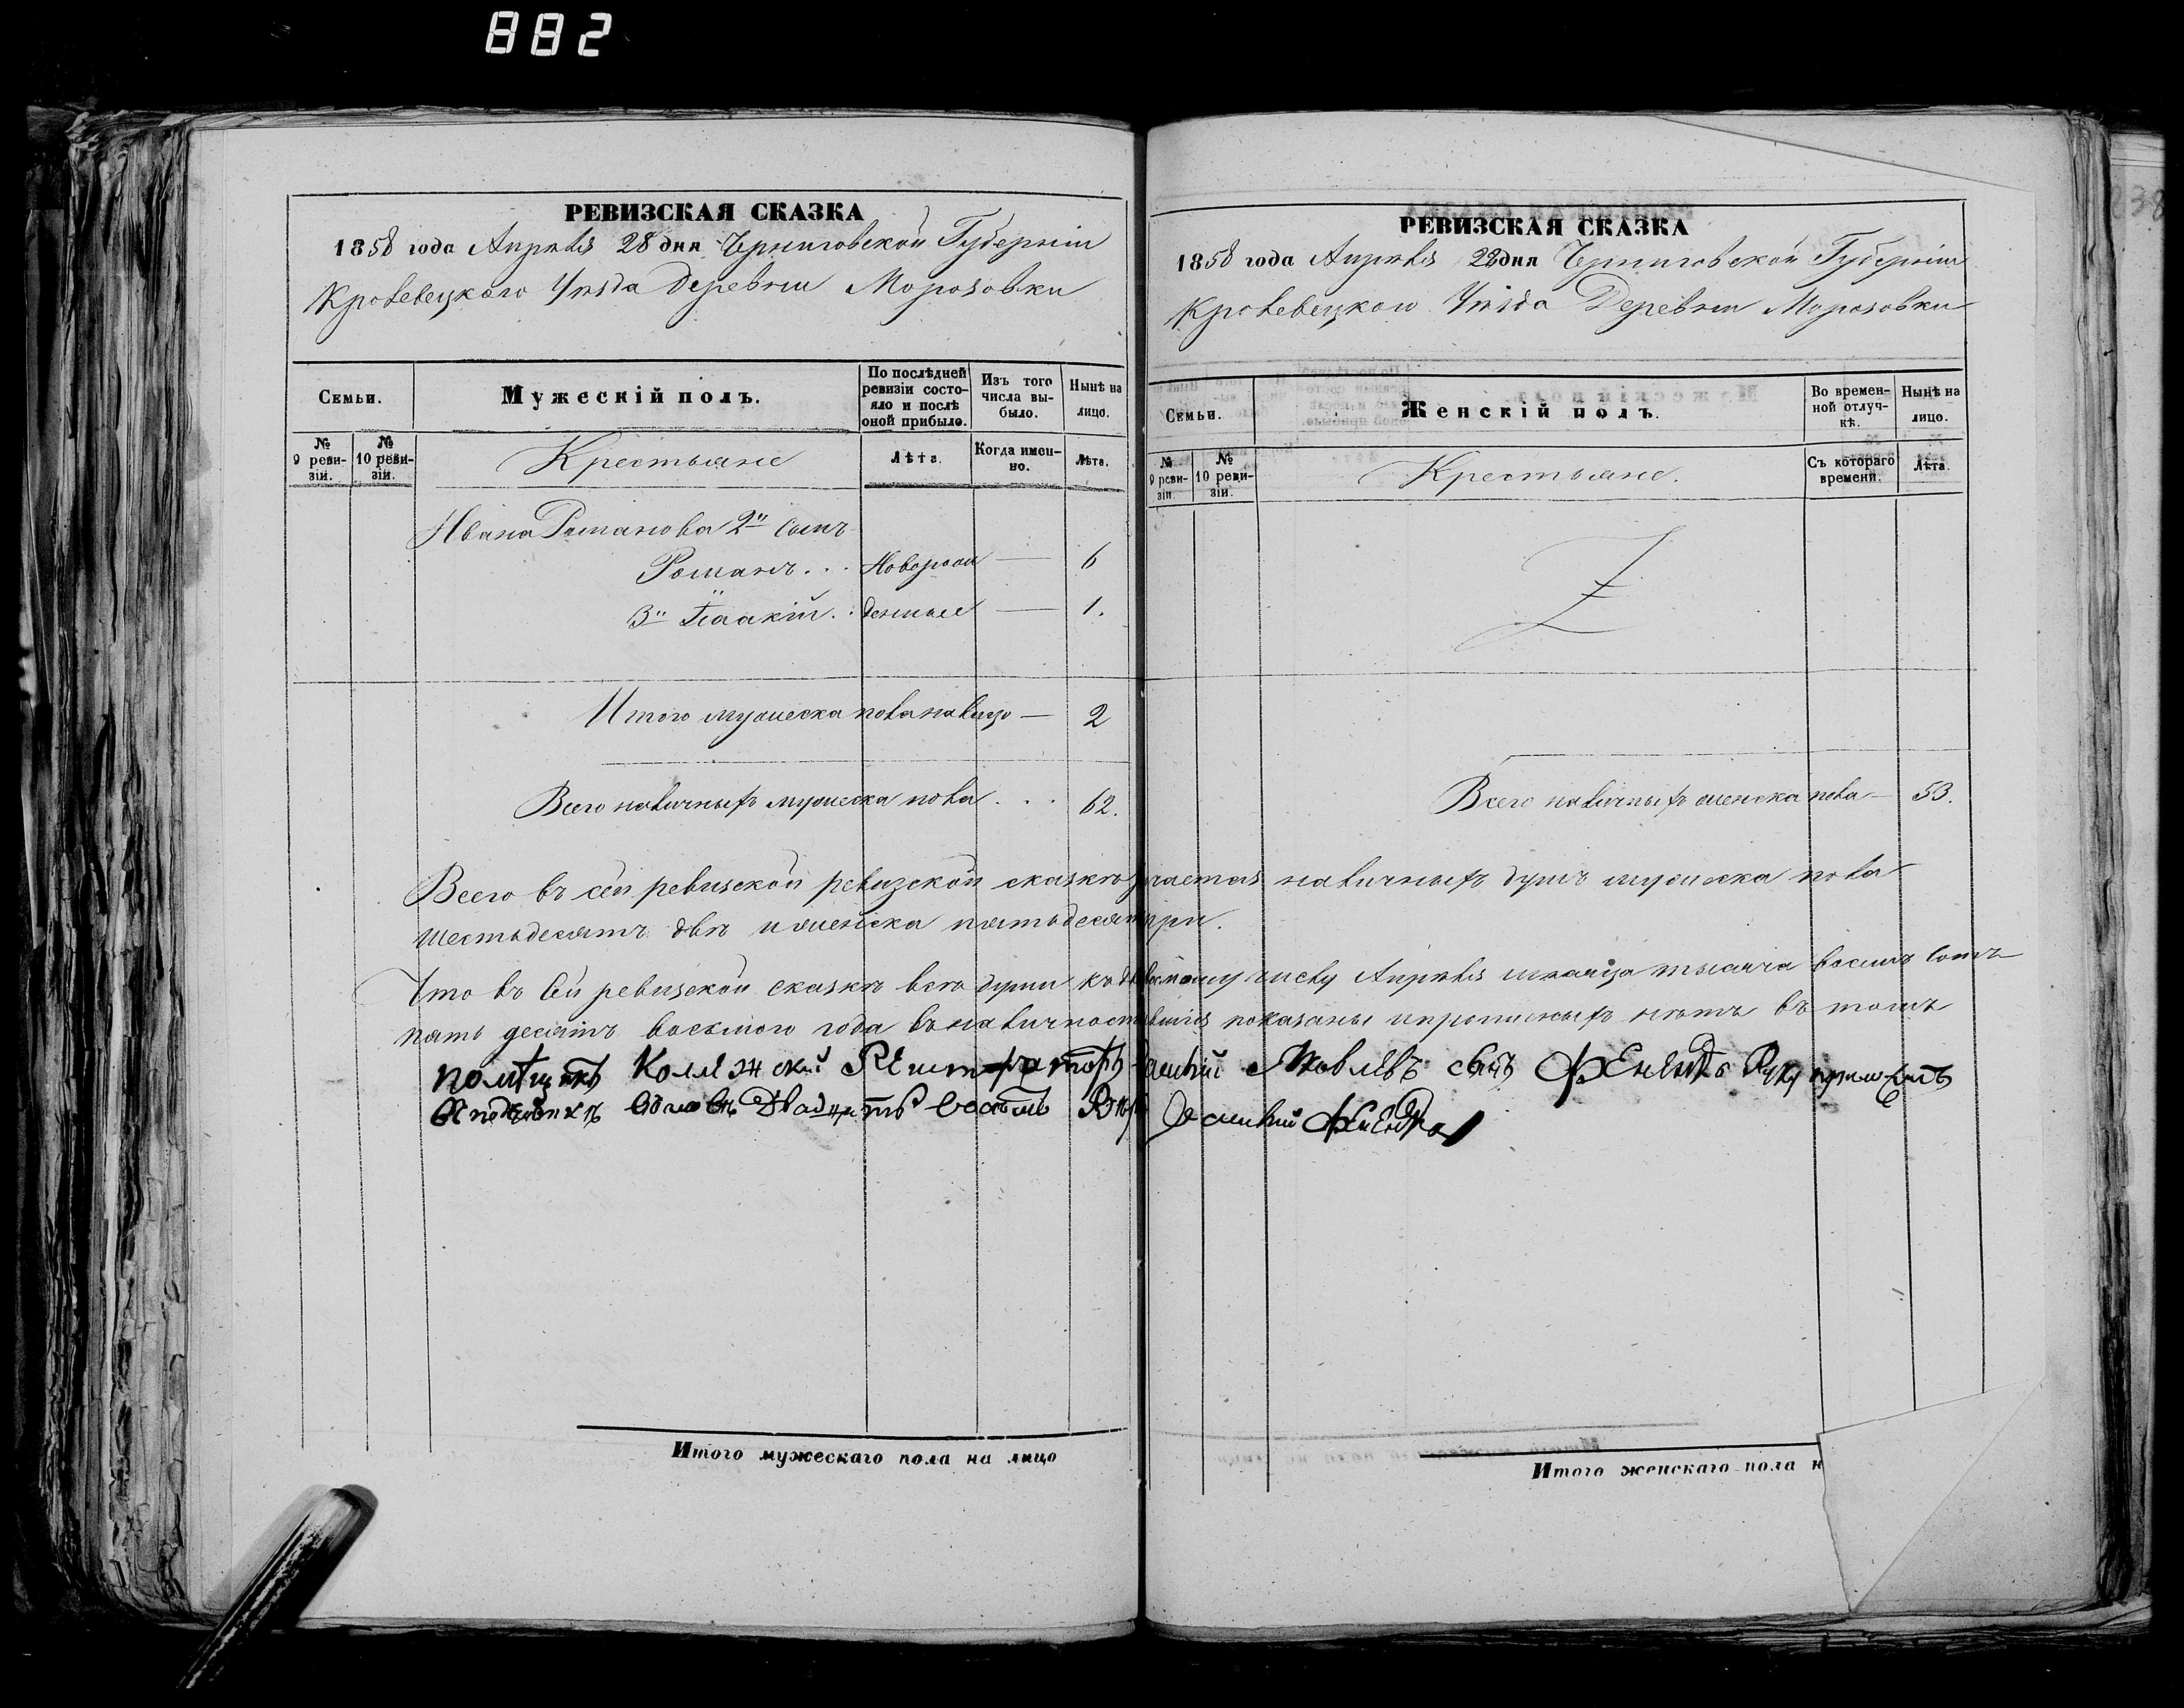 882
РЕВИЗСКАЯ СКАЗКА
1858 года Апрѣля 28 дня Черниговской Губерніи
Кролевецкаго Уѣзда Деревни Морозовки
Семьи.
Мужескій полъ.
По послѣдней ревизіи состояло и послѣ оной прибыло.
Изъ того числа выбыло.
Нынѣ на лицо.
№ 9 ревизіи.
№ 10 ревизіи.
Крестьяне
Лѣта.
Когда именно.
Лѣта.
Ивана Романова 2й сынъ
Романъ . . . Новорож — 6
3й Ісаакій . . денные — 1.
Итого мужеска пола налицо — 2
Всего наличныхъ мужеска пола . . . 62.
РЕВИЗСКАЯ СКАЗКА
1858 года Апрѣля 28 дня Черниговской Губерніи
Кролевецкого Уѣзда Деревни Морозовки
Семьи.
Женскій полъ.
Во временной отлучкѣ.
Нынѣ на лицо.
№ 9 ревизіи.
№ 10 ревизіи.
Крестьяне.
Съ котораго времени.
Лѣта.
Всего наличныхъ женска пола — 53.
Всего въ сей ревизской ревизской сказкѣ значится наличныхъ душъ мужеска пола
шестьдесятъ двѣ и женска пятьдесятъ три.
Что въ сей ревизской сказкѣ всѣ души къ числу Апрѣля мѣсяца тысяча восемь сотъ
пять десятъ восьмого года въ наличности показаны и прописныхъ нѣтъ въ томъ
помѣщикъ Коллежский Регистраторъ Яковлевъ сынъ Руку приложилъ
двадцать восемь
Итого мужескаго пола на лицо
Итого женскаго пола н